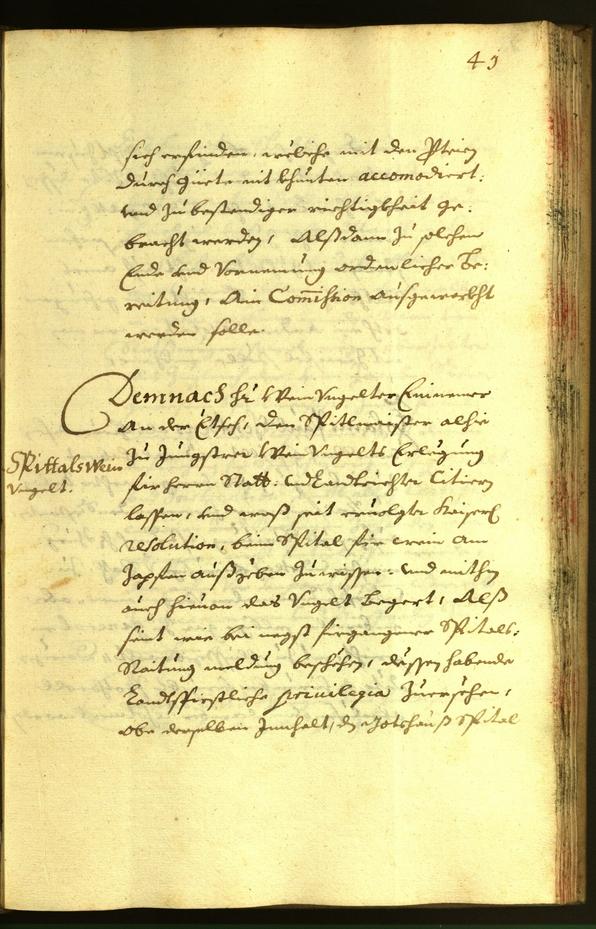 43
sich erfinden, weliche mit den Parteien
durch güete nit khünten accomodiert:
und zu bestendiger richtigkheit ge:
bracht werden, Alßdann zu solchem
Ende und Vornemung ordenlicher Be:
reitung, Ain Commission ausgewürkht
werden solle.
Demnach Hr Wein Ungelter Einnemer
an der Etsch, den Spitlmaister alhie
zu Jüngster Wein Ungelts Erlegung
für Herrn Statt: und Landrichter Citiern
lassen, und waß seit ervolgter Kaiserl
resolution, beim Spital für wein am
Zapfen außgeben zuwissen: und mithin
auch hievon das Ungelt begert, Alß
seint wie bei negst fürgangener Spitals:
Raitung meldung beschehen, dessen habende
Landtsfürstliche privilegia zuersehen,
obe derselben Innhalt, dz Gotshauß Spital
Spittals Wein
Ungelt.